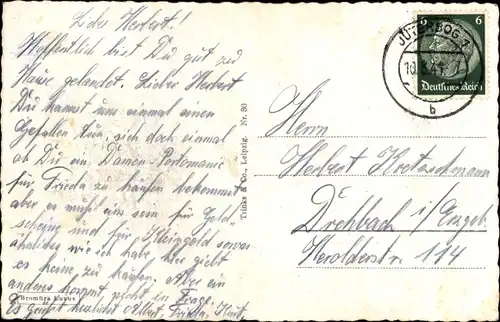 Lieber Herbert!
Hoffentlich bist Du gut zu
Hause gelandet. Lieber Herbert
Du kannst uns einmal einen
Gefallen tun, sich doch einmal
ob Du ein Damen-Portmonaie
für Frieda zu kaufen bekommst
aber es muß eins sein für Geld-
scheine und für Kleingeld sowas
ähnliches wie ich habe, hier giebt
es keine zu kaufen. Aber ein
anderes kommt nicht in Frage.
Es Grüßt herzlichst Albert, Frieda, Kurt,
Trinks & Co., Leipzig. Nr. 80
JÜTERBOG 1
b
6 6
Deutsches Reich
Herrn
Herbert
Drehbach i/Erzgeb.
Herolderstr. 114